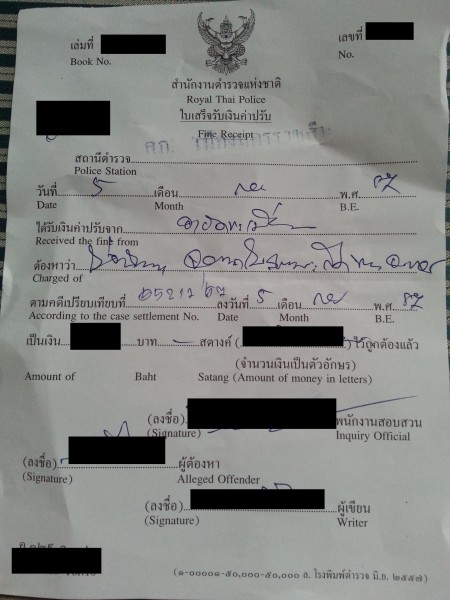 เล่มที่ เลขที่
Book No. No.
สำนักงานตำรวจแห่งชาติ
Royal Thai Police
ใบเสร็จรับเงินค่าปรับ
Fine Receipt
สถานีตำรวจ
Police Station
วันที่ 5 เดือน กย พ.ศ. 57
Date Month B.E.
ได้รับเงินค่าปรับจาก
Received the fine from
ต้องหาว่า
Charged of
ตามคดีเปรียบเทียบที่ ลงวันที่ 5 เดือน กย พ.ศ. 57
According to the case settlement No. Date Month B.E.
เป็นเงิน บาท — สตางค์ ( ) ไว้ถูกต้องแล้ว
(จำนวนเงินเป็นตัวอักษร)
Amount of Baht Satang (Amount of money in letters)
(ลงชื่อ) พนักงานสอบสวน
(Signature) Inquiry Official
(ลงชื่อ) ผู้ต้องหา
(Signature) Alleged Offender
(ลงชื่อ) ผู้เขียน
(Signature) Writer
(๑-๐๐๐๐๑-๕๐,๐๐๐-๕๐,๐๐๐ ล. โรงพิมพ์ตำรวจ มิ.ย. ๒๕๕๗)